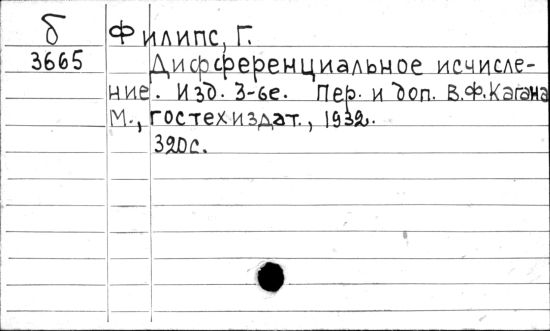 б Филипс, Г.
3665 Дифференциальное исчисле-
ние. Изд. 3-ье. Пер. и доп. В.Ф.Кагана
М., гостехиздат., 1932.
320с.